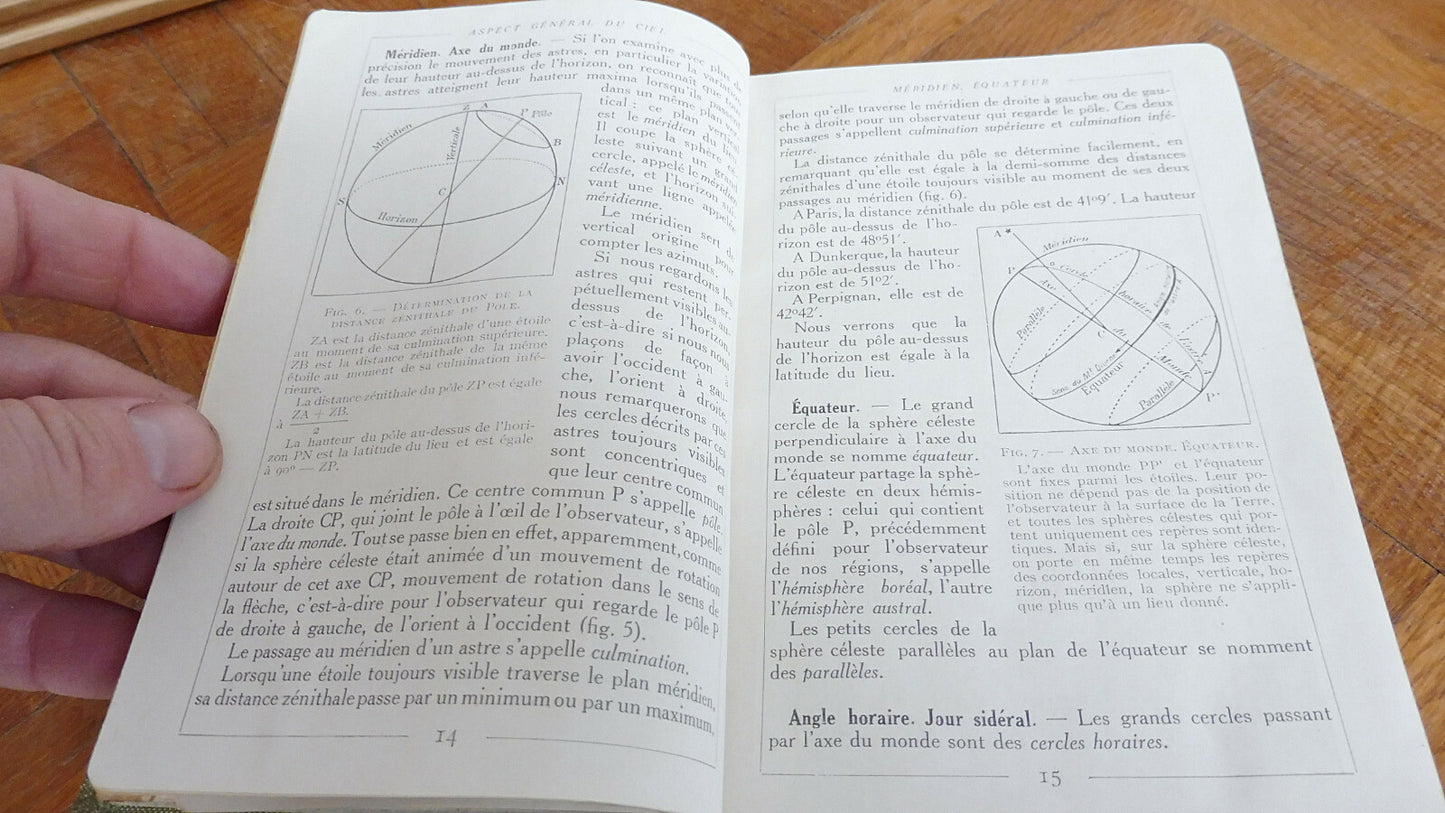 ASPECT GÉNÉRAL DU CIEL
Méridien. Axe du monde. — Si l'on examine avec plus de
précision le mouvement des astres, en particulier la variation
de leur hauteur au-dessus de l'horizon, on reconnaît que tous
les astres atteignent leur hauteur maxima lorsqu'ils passent
dans un même plan ver-
tical : ce plan vertical
est le méridien du lieu.
Il coupe la sphère cé-
leste suivant un grand
cercle, appelé le méridien
céleste, et l'horizon sui-
vant une ligne appelée
méridienne.
Le méridien sert de
vertical origine pour
compter les azimuts.
Si nous regardons les
astres qui restent per-
pétuellement visibles au-
dessus de l'horizon,
c'est-à-dire si nous nous
plaçons de façon à
avoir l'occident à gau-
che, l'orient à droite
nous remarquerons que
les cercles décrits par ces
astres toujours visibles
sont concentriques et
que leur centre commun
Z A P Pôle
Méridien
Verticale
B
N
C
S
Horizon
FIG. 6. — DÉTERMINATION DE LA
DISTANCE ZÉNITHALE DU POLE.
ZA est la distance zénithale d'une étoile
au moment de sa culmination supérieure.
ZB est la distance zénithale de la même
étoile au moment de sa culmination infé-
rieure.
La distance zénithale du pôle ZP est égale
à ZA + ZB.
2
La hauteur du pôle au-dessus de l'hori-
zon PN est la latitude du lieu et est égale
à 90° — ZP.
est situé dans le méridien. Ce centre commun P s'appelle pôle.
La droite CP, qui joint le pôle à l'œil de l'observateur, s'appelle
l'axe du monde. Tout se passe bien en effet, apparemment, comme
si la sphère céleste était animée d'un mouvement de rotation
autour de cet axe CP, mouvement de rotation dans le sens de
la flèche, c'est-à-dire pour l'observateur qui regarde le pôle P
de droite à gauche, de l'orient à l'occident (fig. 5).
Le passage au méridien d'un astre s'appelle culmination.
Lorsqu'une étoile toujours visible traverse le plan méridien,
sa distance zénithale passe par un minimum ou par un maximum,
14
MÉRIDIEN, ÉQUATEUR
selon qu'elle traverse le méridien de droite à gauche ou de gau-
che à droite pour un observateur qui regarde le pôle. Ces deux
passages s'appellent culmination supérieure et culmination infé-
rieure.
La distance zénithale du pôle se détermine facilement, en
remarquant qu'elle est égale à la demi-somme des distances
zénithales d'une étoile toujours visible au moment de ses deux
passages au méridien (fig. 6).
A Paris, la distance zénithale du pôle est de 41°9′. La hauteur
du pôle au-dessus de l'ho-
rizon est de 48°51′.
A Dunkerque, la hauteur
du pôle au-dessus de l'ho-
rizon est de 51°2′.
A Perpignan, elle est de
42°42′.
Nous verrons que la
hauteur du pôle au-dessus
de l'horizon est égale à la
latitude du lieu.
Équateur. — Le grand
cercle de la sphère céleste
perpendiculaire à l'axe du
monde se nomme équateur.
L'équateur partage la sphè-
re céleste en deux hémis-
phères : celui qui contient
le pôle P, précédemment
défini pour l'observateur
de nos régions, s'appelle
l'hémisphère boréal, l'autre
l'hémisphère austral.
A
Méridien
P
Cercle horaire de
Axe du Monde
Parallèle
C
Sens du Mt Diurne
Equateur
Parallèle
P'
FIG. 7. — AXE DU MONDE. ÉQUATEUR.
L'axe du monde PP' et l'équateur
sont fixes parmi les étoiles. Leur po-
sition ne dépend pas de la position de
l'observateur à la surface de la Terre,
et toutes les sphères célestes qui por-
tent uniquement ces repères sont iden-
tiques. Mais si, sur la sphère céleste,
on porte en même temps les repères
des coordonnées locales, verticale, ho-
rizon, méridien, la sphère ne s'appli-
que plus qu'à un lieu donné.
Les petits cercles de la
sphère céleste parallèles au plan de l'équateur se nomment
des parallèles.
Angle horaire. Jour sidéral. — Les grands cercles passant
par l'axe du monde sont des cercles horaires.
15